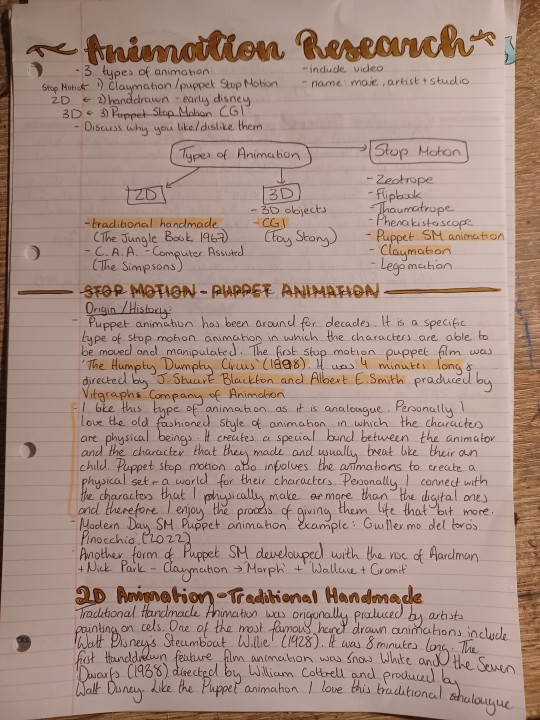 Animation Research
- 3 types of animation: - include video
Stop Motion ← 1) Claymation/puppet Stop Motion - name: movie, artist + studio
2D ← 2) handdrawn - early disney
3D ← 3) Puppet Stop Motion CGI
- Discuss why you like/dislike them
Types of Animation
Stop Motion
2D
3D
- Zeotrope
- Flipbook
- Thaumatrope
- Phenakistoscope
- Puppet SM animation
- Claymation
- Legomation
- traditional handmade
(The Jungle Book 1967)
- C.A.A. - Computer Assisted
(The Simpsons)
- 3D objects
- CGI
(Toy Story)
STOP MOTION - PUPPET ANIMATION
Origin/History:
- Puppet animation has been around for decades. It is a specific
type of stop motion animation in which the characters are able to
be moved and manipulated. The first stop motion puppet film was
'The Humpty Dumpty Circus' (1898). It was 4 minutes long &
directed by J. Stuart Blackton and Albert E. Smith produced by
Vitagraphs Company of Animation
- I like this type of animation as it is analougue. Personally I
love the old fashioned style of animation in which the characters
are physical beings. It creates a special bond between the animator
and the character that they made and usually treat like their own
child. Puppet stop motion also involves the animations to create a
physical set or a world for their characters. Personally I connect with
the characters that I physically make more than the digital ones
and therefore I enjoy the process of giving them life that bit more.
- Modern Day SM Puppet animation example: Guillermo del toro's
Pinocchio (2022)
- Another form of Puppet SM developed with the rise of Aardman
+ Nick Park - Claymation → 'Morph' + 'Wallace + Gromit'
2D Animation - Traditional Handmade
Traditional Handmade Animation was origonally produced by artists
painting on cels. One of the most famous hand drawn animations include
Walt Disney's Steamboat Willie' (1928). It was 8 minutes long. The
first Handdrawn feature film animation was Snow White and the Seven
Dwarfs (1938) directed by William Cottrell and produced by
Walt Disney. Like the Puppet animation I love this traditional analougue